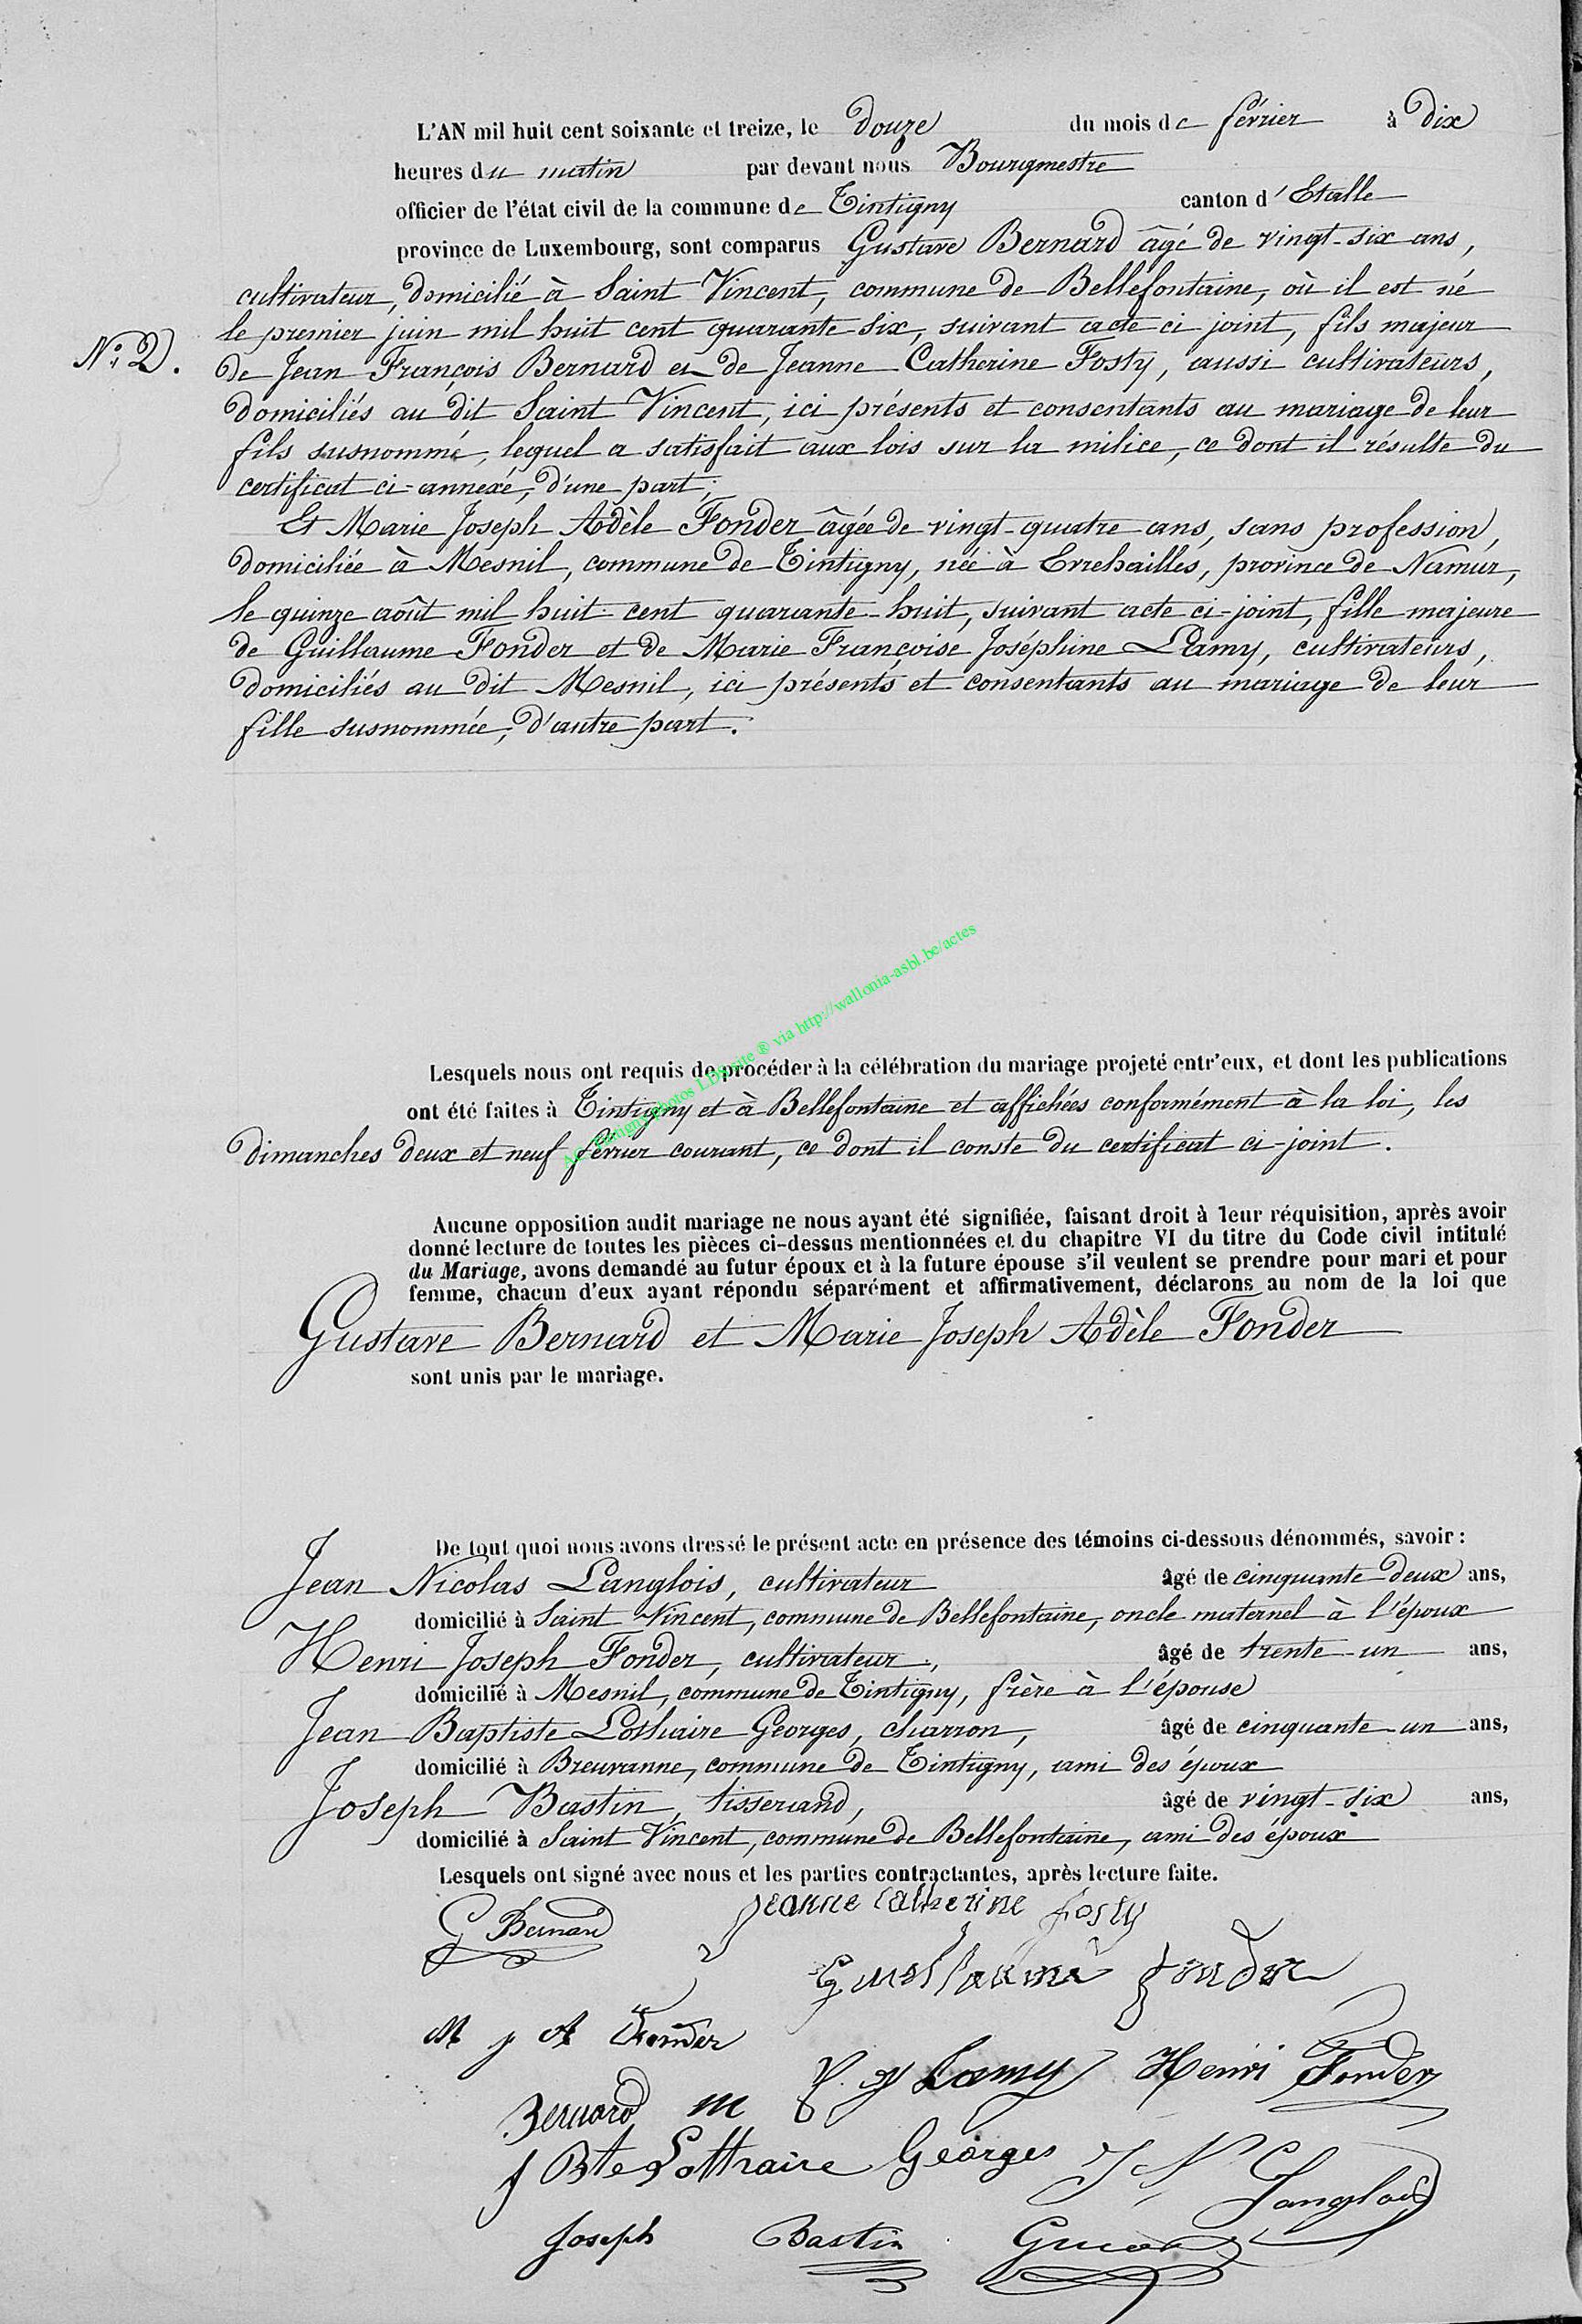 L'AN mil huit cent soixante et treize, le douze du mois de février à dix
heures du matin par devant nous Bourgmestre
officier de l'état civil de la commune de Tintigny canton d'Etalle
province de Luxembourg, sont comparus Gustave Bernard âgé de vingt-six ans,
cultivateur, domicilié à Saint Vincent, commune de Bellefontaine, où il est né
le premier juin mil huit cent quarante-six, suivant acte ci joint, fils majeur
N° 2.
de Jean François Bernard et de Jeanne Catherine Fosty, aussi cultivateurs,
domiciliés au dit Saint Vincent, ici présents et consentants au mariage de leur
fils susnommé, lequel a satisfait aux lois sur la milice, ce dont il résulte du
certificat ci-annexé, d'une part;
Et Marie Joseph Adèle Fonder âgée de vingt-quatre ans, sans profession,
domiciliée à Mesnil, commune de Tintigny, née à Evrehailles, province de Namur,
le quinze août mil huit cent quarante-huit, suivant acte ci-joint, fille majeure
de Guillaume Fonder et de Marie Françoise Joséphine Lamy, cultivateurs,
domiciliés au dit Mesnil, ici présents et consentants au mariage de leur
fille susnommée, d'autre part.
Lesquels nous ont requis de procéder à la célébration du mariage projeté entr'eux, et dont les publications
ont été faites à Tintigny et à Bellefontaine et affichées conformément à la loi, les
dimanches deux et neuf février courant, ce dont il conste du certificat ci-joint.
Tintigny photos LDS site ® via http://wallonia-asbl.be/actes
Aucune opposition audit mariage ne nous ayant été signifiée, faisant droit à leur réquisition, après avoir
donné lecture de toutes les pièces ci-dessus mentionnées et du chapitre VI du titre du Code civil intitulé
du Mariage, avons demandé au futur époux et à la future épouse s'il veulent se prendre pour mari et pour
femme, chacun d'eux ayant répondu séparément et affirmativement, déclarons au nom de la loi que
Gustave Bernard et Marie Joseph Adèle Fonder
sont unis par le mariage.
De tout quoi nous avons dressé le présent acte en présence des témoins ci-dessous dénommés, savoir :
Jean Nicolas Langlois, cultivateur âgé de cinquante-deux ans,
domicilié à Saint Vincent, commune de Bellefontaine, oncle maternel à l'époux
Henri Joseph Fonder, cultivateur, âgé de trente-un ans,
domicilié à Mesnil, commune de Tintigny, frère à l'épouse
Jean Baptiste Lothaire Georges, charron, âgé de cinquante-un ans,
domicilié à Breuvanne, commune de Tintigny, ami des époux
Joseph Bastin, tisserand, âgé de vingt-six ans,
domicilié à Saint Vincent, commune de Bellefontaine, ami des époux
Lesquels ont signé avec nous et les parties contractantes, après lecture faite.
G Bernard Jeanne Catherine fosty
Guillaume fonder
M j A Fonder
Bernard m f. j Lamy Henri Fonder
j Bte Lotthaire Georges J N Langlois
Joseph Bastin